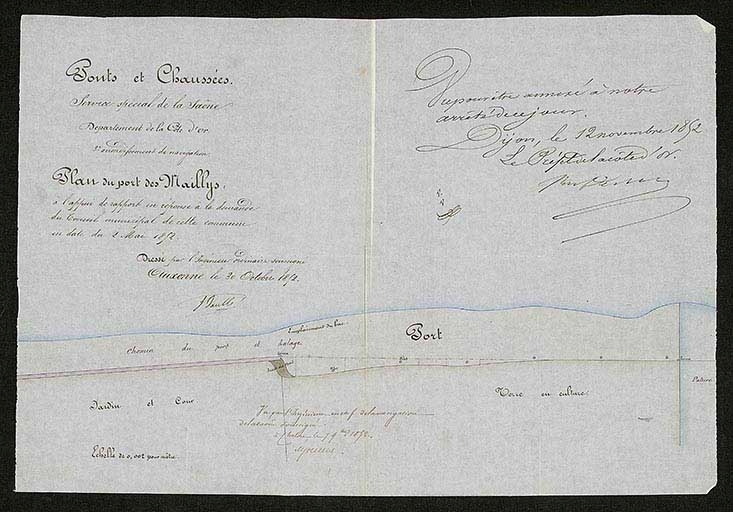 Ponts et Chaussées.
Service spécial de la Saône
Département de la Côte d'or
arrondissement de navigation
Plan du port des Maillys,
à l'appui de rapport en réponse à la demande
du Conseil municipal de cette commune
en date du 2 Mai 1852.
Dressé par l'Ingénieur ordinaire soussigné
Auxonne le 30 Octobre 1852.
Vu pour être annexé à notre
arrêté de ce jour.
Dijon, le 12 novembre 1852
Le Préfet de la côte d'or.
Emplacement du bac
Port
Chemin du port et halage
Pature
Jardin et Cour
Terre en culture.
Vu par l'Ingénieur en chef de la navigation
de la Saône soussigné
le 9 9bre 1852.
Echelle de 0,002 pour mètre.